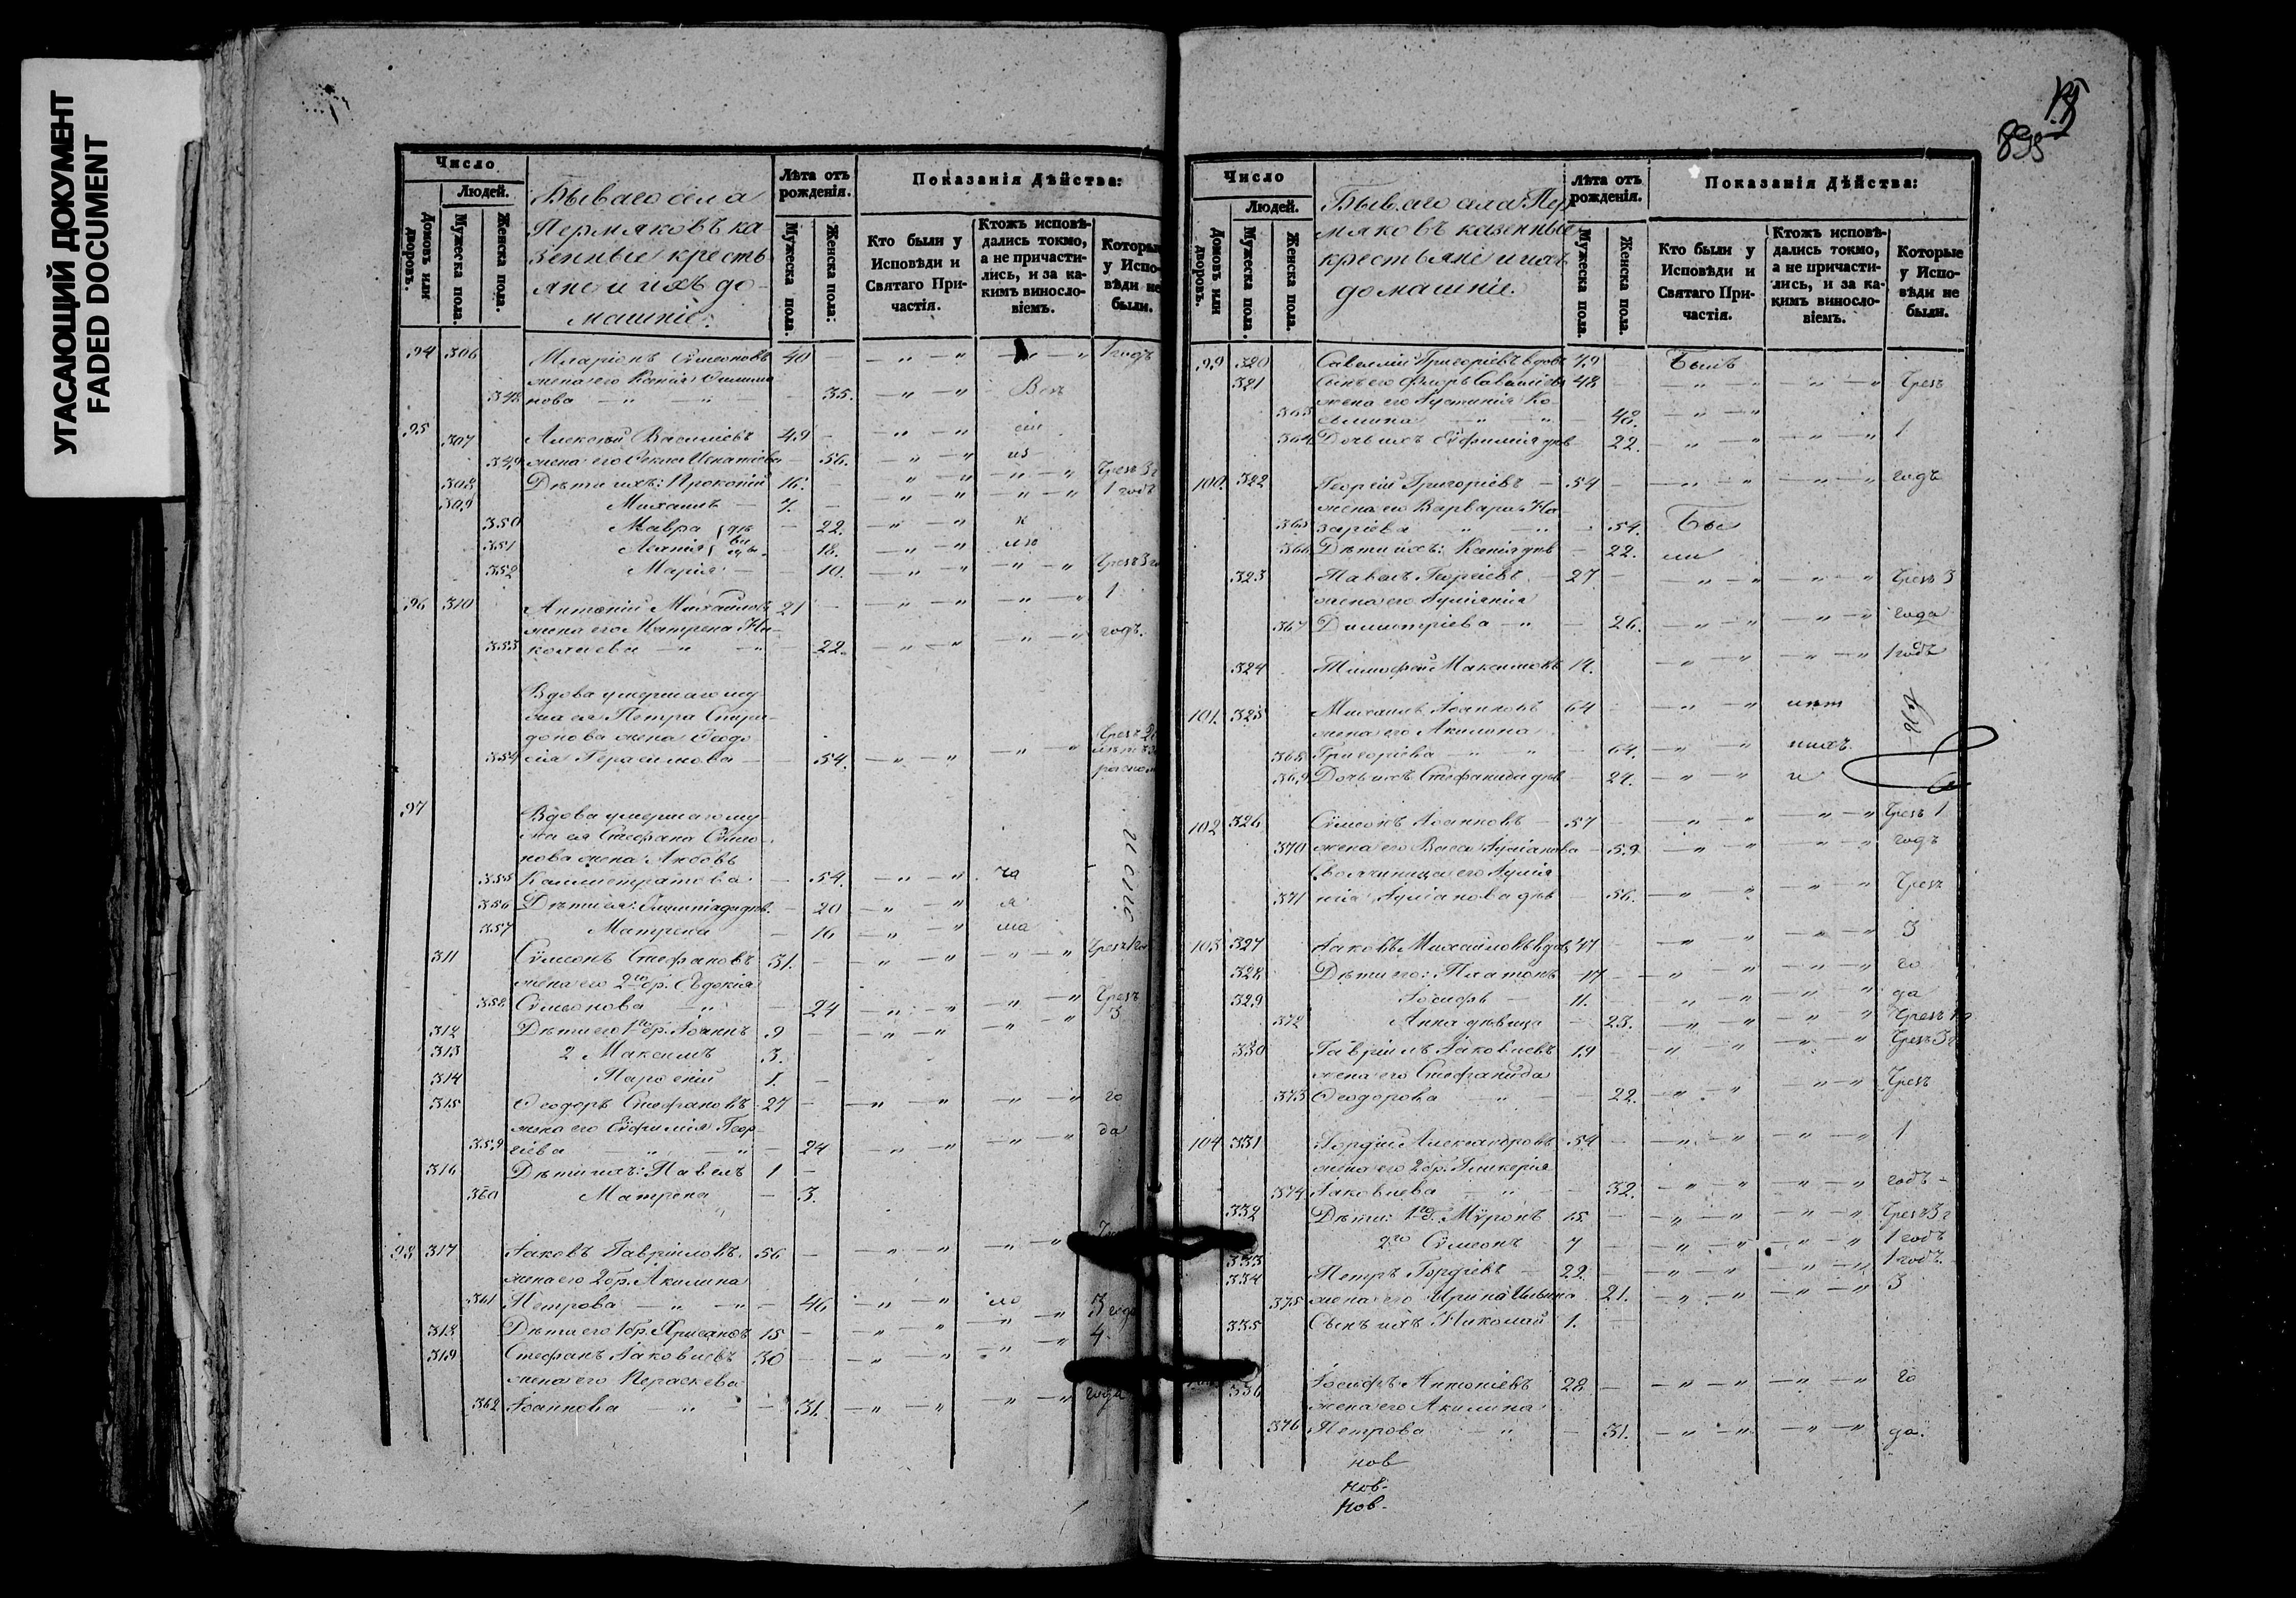 УГАСАЮЩИЙ ДОКУМЕНТ
FADED DOCUMENT
895
Число
Людей.
Домовъ или дворовъ.
Мужеска пола.
Женска пола.
Бываго села
Пермяковъ ка
зенные кресть
яне и ихъ до-
машніе.
Лѣта отъ рожденія.
Мужеска пола.
Женска пола.
Показанія Дѣйства:
Кто были у Исповѣди и Святаго Причастія.
Ктожъ исповѣдались токмо, а не причастились, и за какимъ винословіемъ.
Которые у Исповѣди не были.
94 306 Иларіонъ Сѵмеоновъ 40 1 годъ
жена его Ксенія
348 нова 35.
95 307 Алексѣй Василіевъ 49
349 жена его Фекла Игнатіева 56.
308 Дѣти ихъ: Прокопій 16. Чрезъ 3 г
309 Михаилъ 7. 1 годъ
350 Мавра 22.
351 18.
352 Марія 10. Чрезъ 3 го
96 310 Антоній Михайловъ 21 1
жена его Матрена Ни-
353 колаева 22. годъ.
Вдова умершаго му-
жа ея Петра Спири-
донова жена Ѳеодо
354 сія Герасимова 54.
97 Вдова умершаго му-
жа ея Стефана Сѵмео-
нова жена Любовь
355 Каллистратова 54.
356 Дѣти ея: Олимпіада дѣв. 20
357 Матрена 16
311 Сѵмеонъ Стефановъ 31.
жена его 2го бр. Евдокія
358 Сѵмеонова 24 Чрезъ 3
312 Дѣти его 1го бр. Іоаннъ 9
313 2 Максимъ 3.
314 1.
315 Ѳеодоръ Стефановъ 27 го
жена его Евфимія Геор-
359 гіева 24 да
316 Дѣти ихъ: Павелъ 1
360 Матрена 3.
98 317 Іаковъ Гавріиловъ 56
жена его 2 бр. Акилина
361 Петрова 46 3 года
318 Дѣти его 1 бр. Хрисанфъ 15 4
319 Стефанъ Іаковлевъ 30
жена его Параскева
362 Іоаннова 31. года
Число
Людей.
Домовъ или дворовъ.
Мужеска пола.
Женска пола.
Бываго села Пер
мяковъ казенные
крестьяне и ихъ
домашніе.
Лѣта отъ рожденія.
Мужеска пола.
Женска пола.
Показанія Дѣйства:
Кто были у Исповѣди и Святаго Причастія.
Ктожъ исповѣдались токмо, а не причастились, и за какимъ винословіемъ.
Которые у Исповѣди не были.
99 320 Савватій Григоріевъ вдовъ 79 Былъ
321 Сынъ его Флоръ Савватіевъ 48 Чрезъ
жена его Іустинія Ко-
363 сьмина 48.
364 Дочь ихъ Евфимія дѣв 22. 1
100. 322 Георгій Григоріевъ 54 годъ
жена его Варвара На-
365 заріева 54. Бы
366 Дѣти ихъ: Ксенія дѣв 22. ли
323 Павелъ Георгіевъ 27 Чрезъ 3
жена его Іуліанія
367 Димитріева 26. года
324 Тимофей Максимовъ 14. 1 годъ
101. 325 Михаилъ Іоанновъ 64
жена его Акилина
368 Григоріева 64.
369 Дочь ихъ Стефанида дѣв 24.
102 326 Сѵмеонъ Іоанновъ 57 Чрезъ 1
370 жена его Васса Іуліанова 59 годъ
Своячиница его Іуліа
371 нія Іуліанова дѣв 56. Чрезъ
103 327 Іаковъ Михайловъ вдовъ 47 3
328 Дѣти его: Платонъ 17 го
329 Іосифъ 11. да
372 Анна дѣвица 23.
330 Гавріилъ Іаковлевъ 19 Чрезъ 3 г
жена его Стефанида
373 Ѳеодорова 22. Чрезъ
104 331 Гордій Александровъ 54 1
жена его 2 бр. Гликерія
374 Іаковлева 32. годъ
332 Дѣти: 1го б. Мѵронъ 15. Чрезъ 3 г
333 2го Сѵмеонъ 7 1 годъ
334 Петръ Гордіевъ 22. 1 годъ
375 жена его Ирина Ильина 21. 3
335 Сынъ ихъ Николай 1.
336 Іосифъ Антоніевъ 28 го
жена его Акилина
376 Петрова 31. да.
нов
нов.
нов.